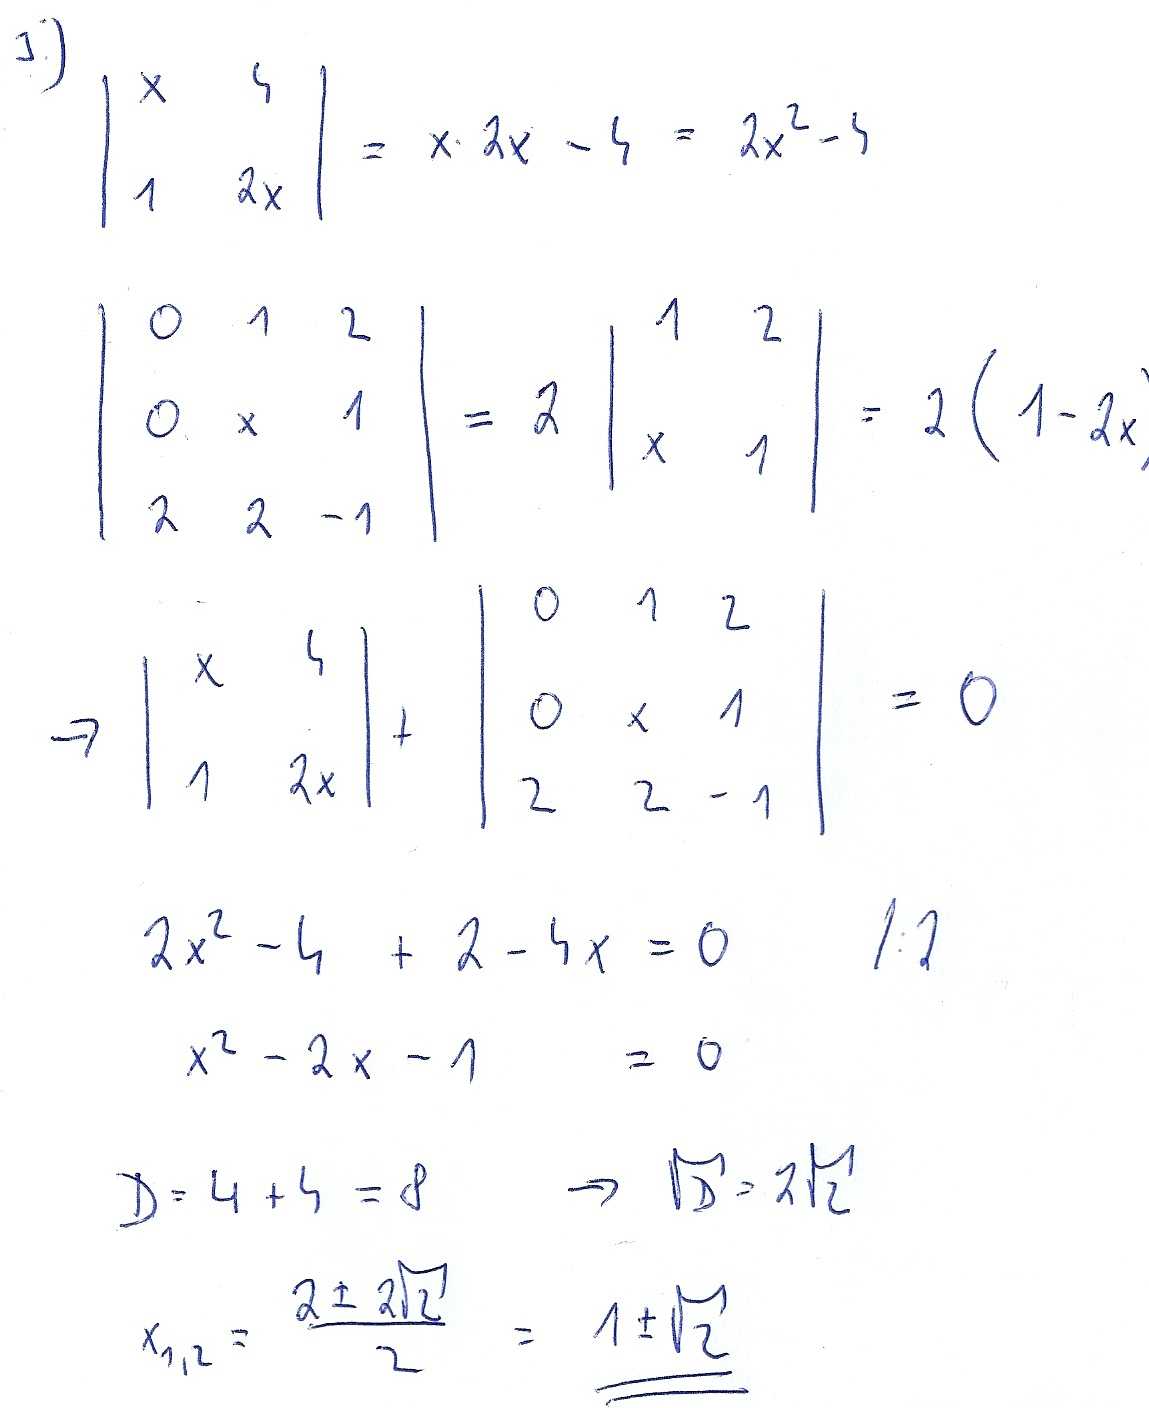 1.)
| x 4 |
| 1 2x | = x · 2x - 4 = 2x² - 4
| 0 1 2 |
| 0 x 1 | = 2 | 1 2 | = 2 ( 1 - 2x )
| 2 2 -1 | | x 1 |
→ | x 4 | + | 0 1 2 |
| 1 2x | | 0 x 1 | = 0
| 2 2 -1 |
2x² - 4 + 2 - 4x = 0 /:2
x² - 2x - 1 = 0
D = 4 + 4 = 8 → √D = 2√2
x₁,₂ = (2 ± 2√2)/2 = 1 ± √2